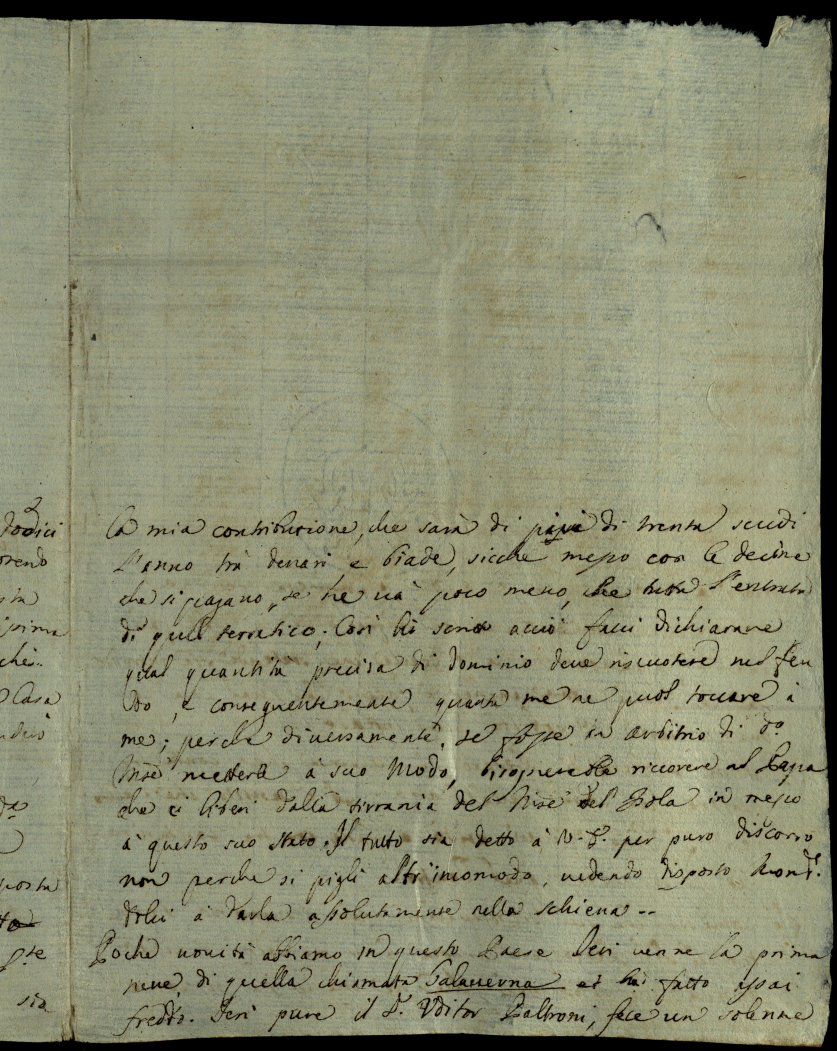 dodici
orendo
sta
prima
chi..
Casa
d.ª
posta
p.te
sia
la mia contribuzione, che sarà di più di trenta scudi
l'anno trà denari e biade, sicche messo con le decime
che si pagano, se ne và poco meno, che tutta l'entrata
di quel terratico; Così hò scritto acciò facci dichiarare
qual quantità precisa di dominio deve riscuotere nel feu
do, e conseguentemente quanta me ne puol toccare à
me; perche diversamente, se fosse in arbitrio di d.º
metterla à suo Modo, bisognerebbe ricorrere al Papa
che ci liberi dalla tirrania del del Isola in mezzo
à questo suo Stato. Il tutto sia detto à V.S. per puro discorso
non perche si pigli altr'incomodo, vedendo disposto Mons.r
Dolci à darla assolutamente nella schiena --
Poche novità abbiamo in questo Paese Ieri venne la prima
neve, di quella chiamata Galaverna et hà fatto assai
freddo. Ieri pure il S.r Uditor Paltroni, fece un solenne